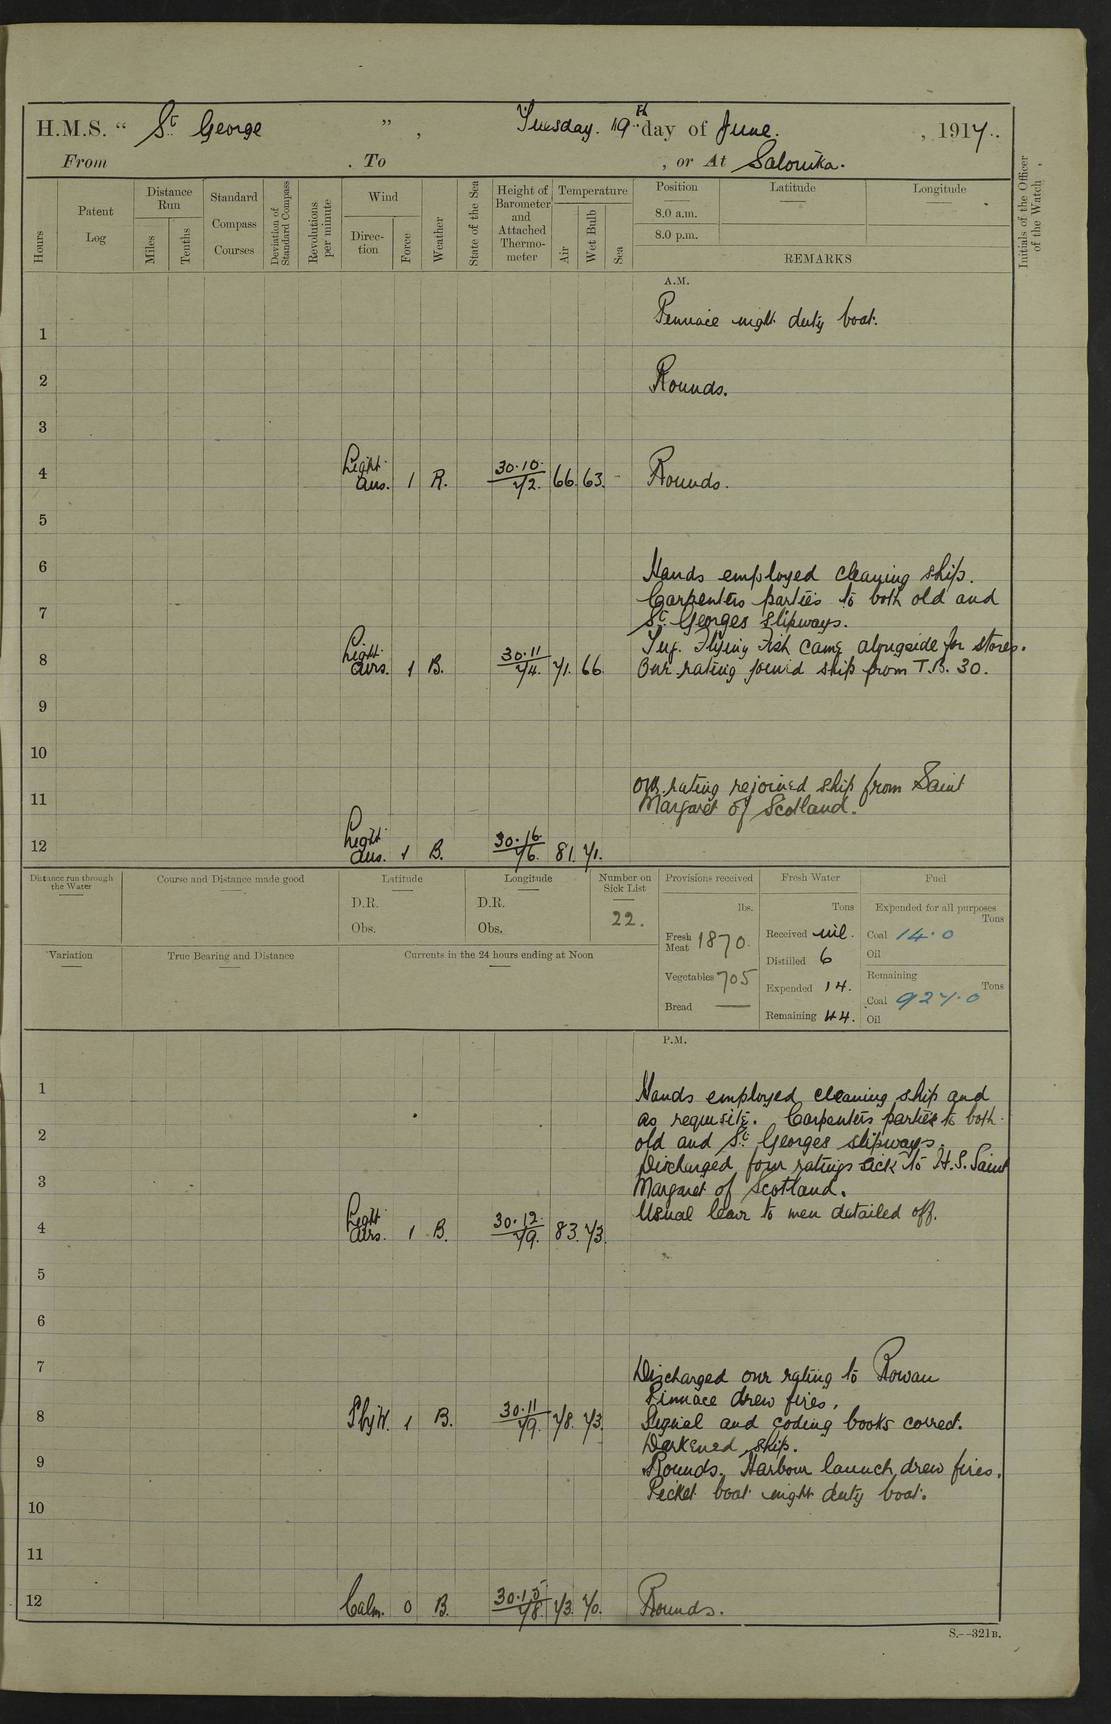 H.M.S. " St George " , Tuesday. 19th day of June. , 1917.
From . To , or At Salonika.
Hours
Patent Log
Distance Run
Miles
Tenths
Standard Compass Courses
Deviation of Standard Compass
Revolutions per minute
Wind
Direction
Force
Weather
State of the Sea
Height of Barometer and Attached Thermometer
Temperature
Air
Wet Bulb
Sea
Position
8.0 a.m.
8.0 p.m.
Latitude
Longitude
REMARKS
Initials of the Officer of the Watch
A.M.
1 Pinnace night duty boat.
2 Rounds.
3
4 Light airs. 1 B. 30.10 72. 66. 63. - Rounds.
5
6 Hands employed cleaning ship.
Carpenters parties to both old and
7 St. Georges slipways.
Tug. Flying Fish came alongside for stores.
8 Light airs. 1 B. 30.11 74. 71. 66 One rating joined ship from T.B. 30.
9
10
11 One rating rejoined ship from Saint
Margaret of Scotland.
12 Light airs. 1 B. 30.16 76. 81. 71.
Distance run through the Water
Course and Distance made good
Latitude
D.R.
Obs.
Longitude
D.R.
Obs.
Number on Sick List
22.
Provisions received
lbs.
Fresh Meat 1870.
Vegetables 705
Bread —
Fresh Water
Tons
Received nil.
Distilled 6
Expended 14.
Remaining 44.
Fuel
Expended for all purposes
Tons
Coal 14.0
Oil
Remaining
Tons
Coal 927.0
Oil
Variation
True Bearing and Distance
Currents in the 24 hours ending at Noon
P.M.
1 Hands employed cleaning ship and
as requisite. Carpenters parties to both
2 old and St. Georges slipways.
Discharged four ratings sick to H.S. Saint
3 Margaret of Scotland.
Usual leave to men detailed off.
4 Light airs. 1 B. 30.12 79. 83. 73.
5
6
7 Discharged one rating to Rowan
Pinnace drew fires.
8 S by W. 1 B. 30.11 79. 78. 73. Signal and coding books correct.
Darkened ship.
9 Rounds. Harbour launch drew fires.
Picket boat night duty boat.
10
11
12 Calm. 0 B. 30.15 78. 73. 70. Rounds.
S.--321B.